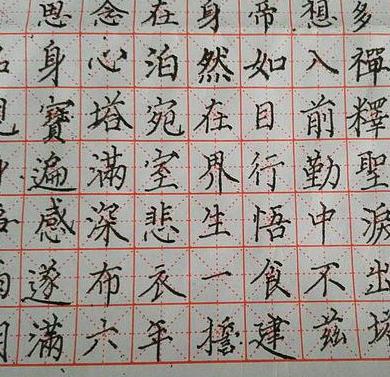 思念在身帝想多
身心泊然如入禪
寶塔宛在目前釋
遍滿室界行勤聖
感深悲生悟中淚
遂布衣一食不出
滿六年建茲